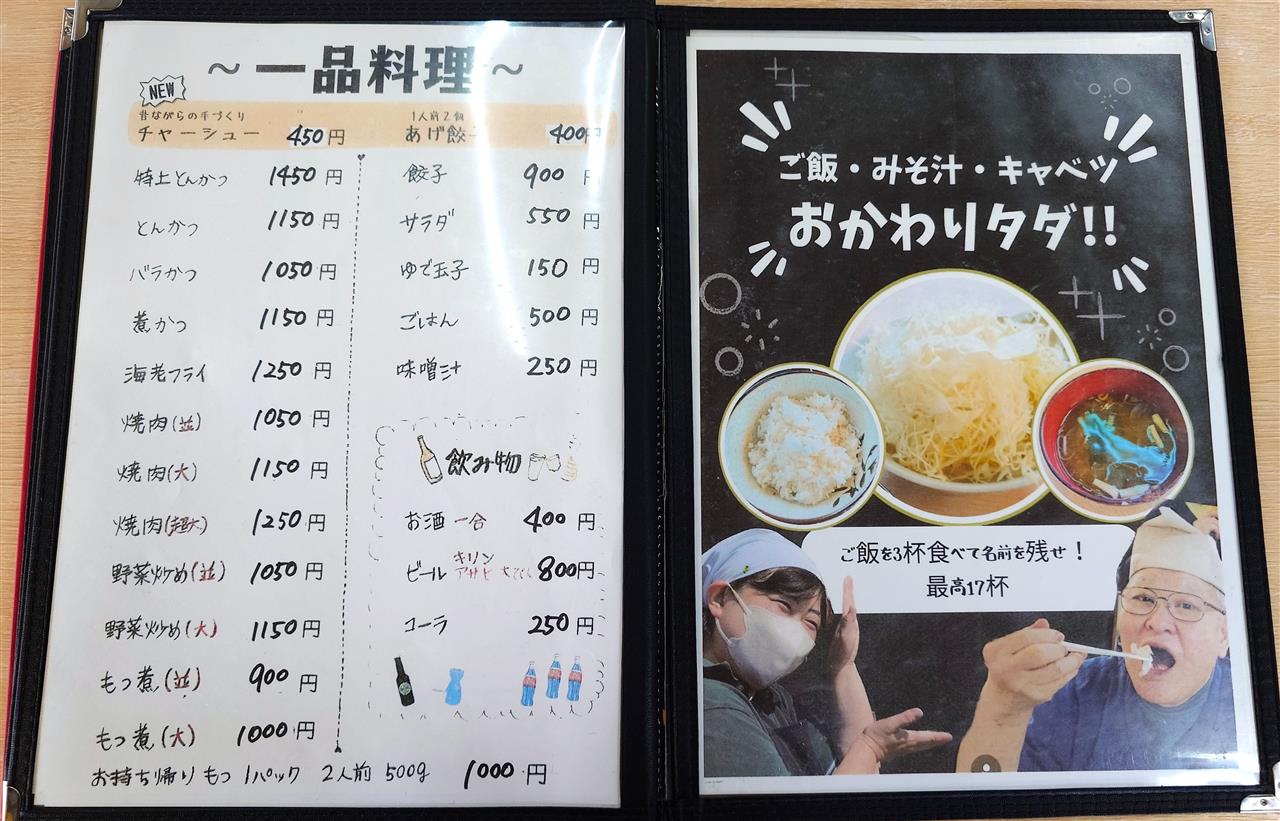 ～一品料理～
NEW
昔ながらの手づくり
チャーシュー 450円
1人前2個
あげ餃子 400円
特上とんかつ 1450円
とんかつ 1150円
バラかつ 1050円
煮かつ 1150円
海老フライ 1250円
焼肉(並) 1050円
焼肉(大) 1150円
焼肉(超大) 1250円
野菜炒め(並) 1050円
野菜炒め(大) 1150円
もつ煮(並) 900円
もつ煮(大) 1000円
餃子 900円
サラダ 550円
ゆで玉子 150円
ごはん 500円
味噌汁 250円
飲み物
お酒 一合 400円
ビール キリン アサヒ 大びん 800円
コーラ 250円
お持ち帰り もつ 1パック 2人前 500g 1000円
ご飯・みそ汁・キャベツ
おかわりタダ!!
ご飯を3杯食べて名前を残せ！
最高17杯